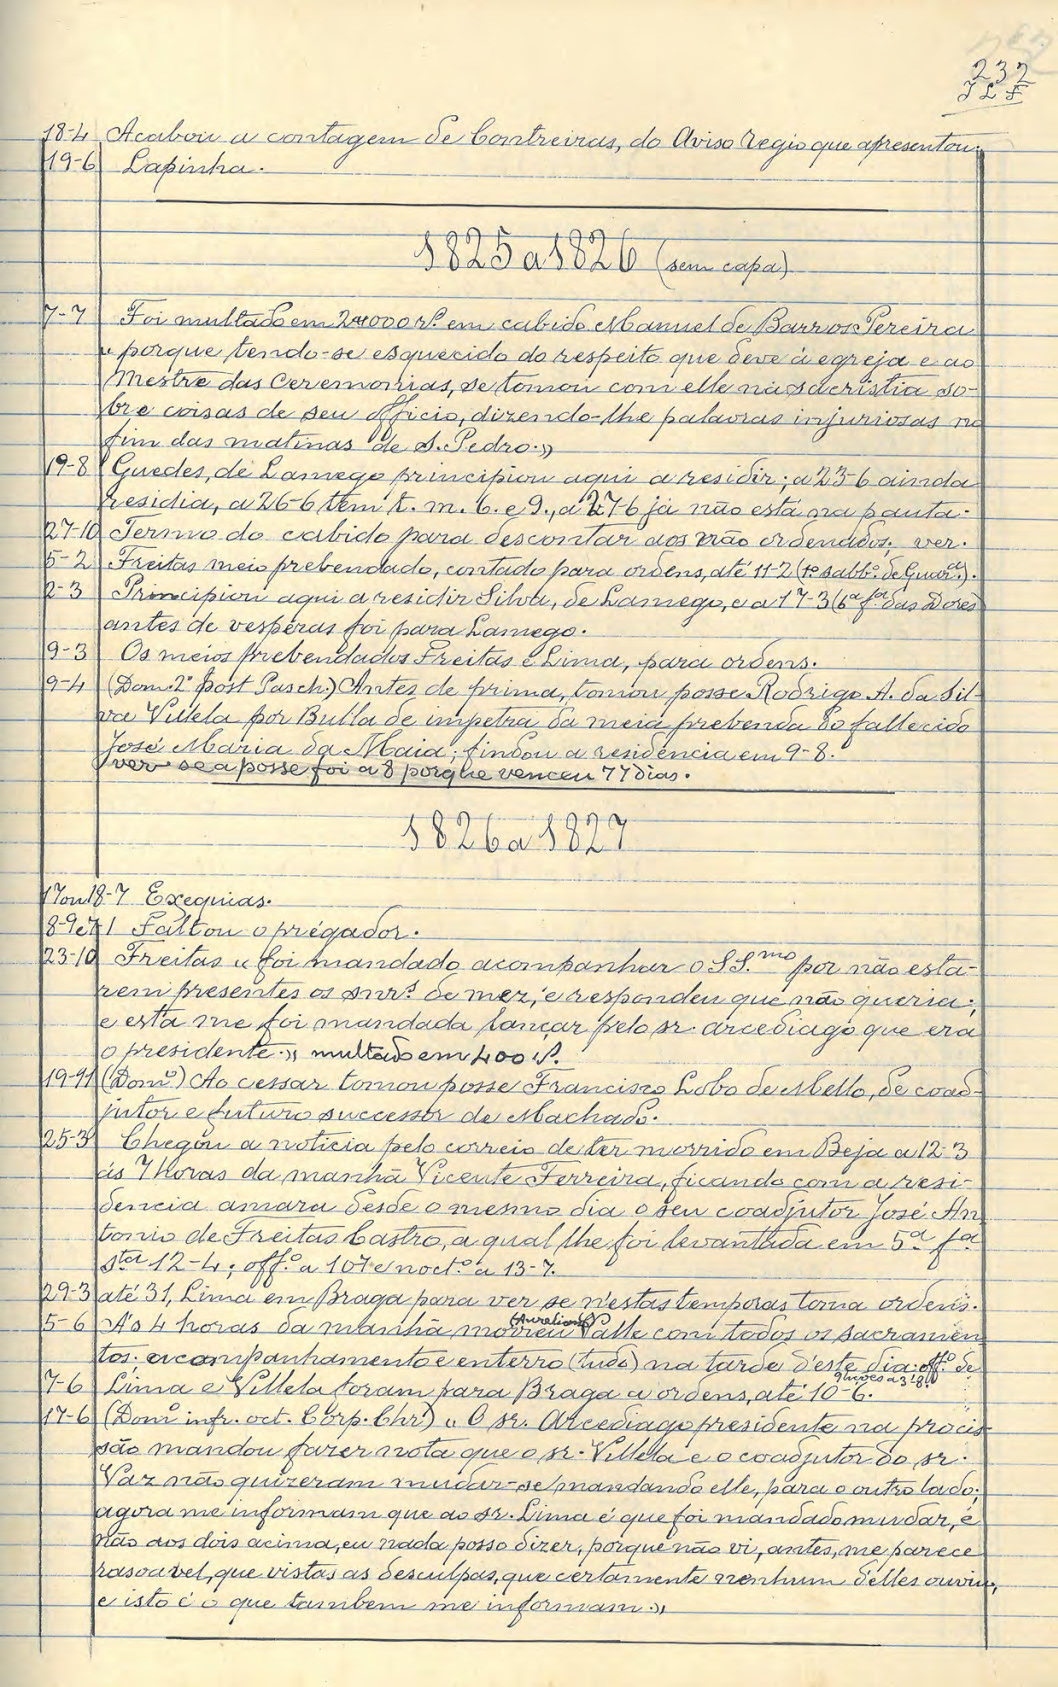 232
J L F
18-4 Acabou a contagem de Contreiras, do Aviso regio que apresentou.
19-6 Lapinha.
1825 a 1826 (sem capa)
7-7 Foi multado em 2400 rs. em cabido Manuel de Barros Pereira
" porque tendo-se esquecido do respeito que deve á egreja e ao
Mestre das Ceremonias, se tomou com elle na sacristia so-
bre coisas de seu officio, dizendo-lhe palavras injuriosas no
fim das matinas de S. Pedro.»
19-8 Guedes, de Lamego principiou aqui a residir; a 23-6 ainda
residia, a 26-6 tem t. m. 6. e 9., a 27-6 já não está na pauta.
27-10 Termo do cabido para descontar aos não ordenados; ver.
5-2 Freitas meio prebendado, contado para ordens, até 11-2 (1º sabbº. de Quarª.).
2-3 Principiou aqui a residir Silva, de Lamego, e a 17-3 (6ª fª das Dores
antes de vesperas foi para Lamego.
9-3 Os meios prebendados Freitas e Lima, para ordens.
9-4 (Dom. 2º post Pasch.) Antes de prima, tomou posse Rodrigo A. da Sil-
va Villela por Bulla de impetra da meia prebenda do fallecido
José Maria da Maia; findou a residencia em 9-8.
ver se a posse foi a 8 porque venceu 77 dias.
1826 a 1827
17 ou 18-7 Exequias.
8-9 e 7 1 Faltou o prégador.
23-10 Freitas " foi mandado acompanhar o SS.mo por não esta-
rem presentes os snrs. de mez, e respondeu que não queria;
e esta me foi mandada lançar pelo sr. arcediago que era
o presidente.» multado em 400 rs.
19-11 (Domº) Ao cessar tomou posse Francisco Lobo de Mello, de coad-
jutor e futuro successor de Machado.
25-3 Chegou a noticia pelo correio de ter morrido em Beja a 12-3
ás 7 horas da manhã Vicente Ferreira, ficando com a resi-
dencia amara desde o mesmo dia o seu coadjutor José An
tonio de Freitas Castro, a qual lhe foi levantada em 5ª fª
stª 12-4; offº. a 10 e noctº. a 13-7.
29-3 até 31, Lima em Braga para ver se n'estas temporas toma ordens.
5-6 A's 4 horas da manhã morreu (Aureliano) Valle com todos os sacramen
tos; acompanhamento e enterro (tudo) na tarde d'este dia; offº. de
9 lições a 3-8.
7-6 Lima e Villela foram para Braga a ordens, até 10-6.
17-6 (Domº infr. oct. Corp. Chr.) " O sr. Arcediago presidente na procis
são mandou fazer nota que o sr. Villela e o coadjutor do sr.
Vaz não quizeram mudar-se, mandando elle, para o outro lado;
agora me informam que ao sr. Lima é que foi mandado mudar, e
não aos dois acima, eu nada posso dizer, porque não vi, antes, me parece
rasoavel, que vistas as desculpas, que certamente nenhum d'elles ouviu,
e isto é o que tambem me informam.»